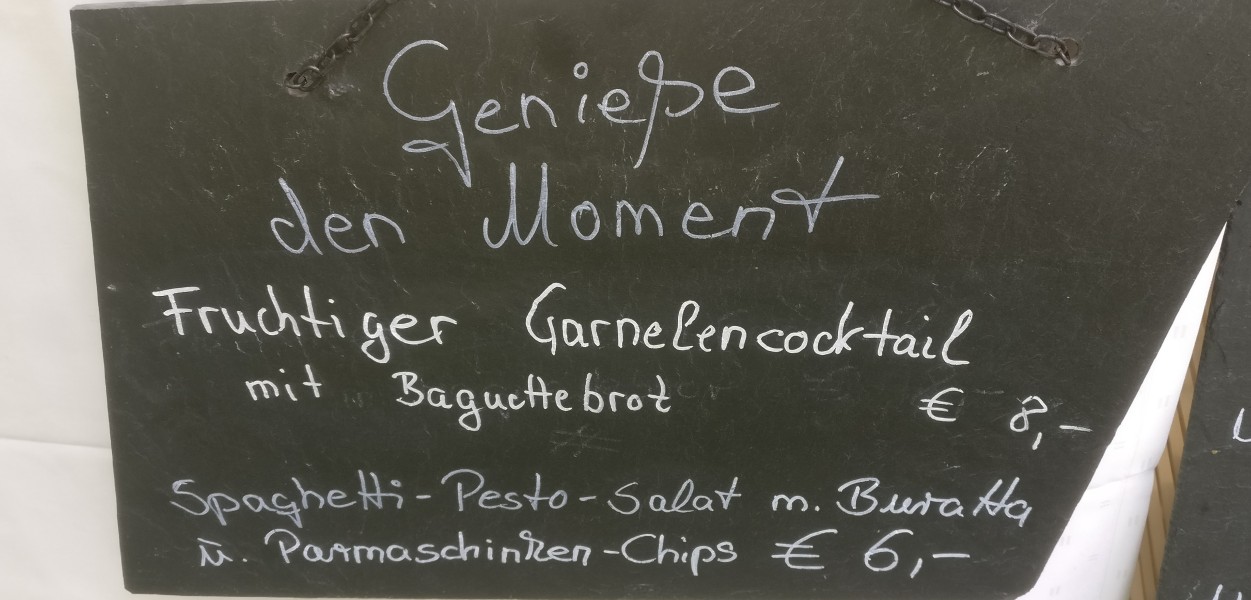 Genieße
den Moment
Fruchtiger Garnelencocktail
mit Baguettebrot € 8,-
Spaghetti-Pesto-Salat m. Buratta
u. Parmaschinken-Chips € 6,-